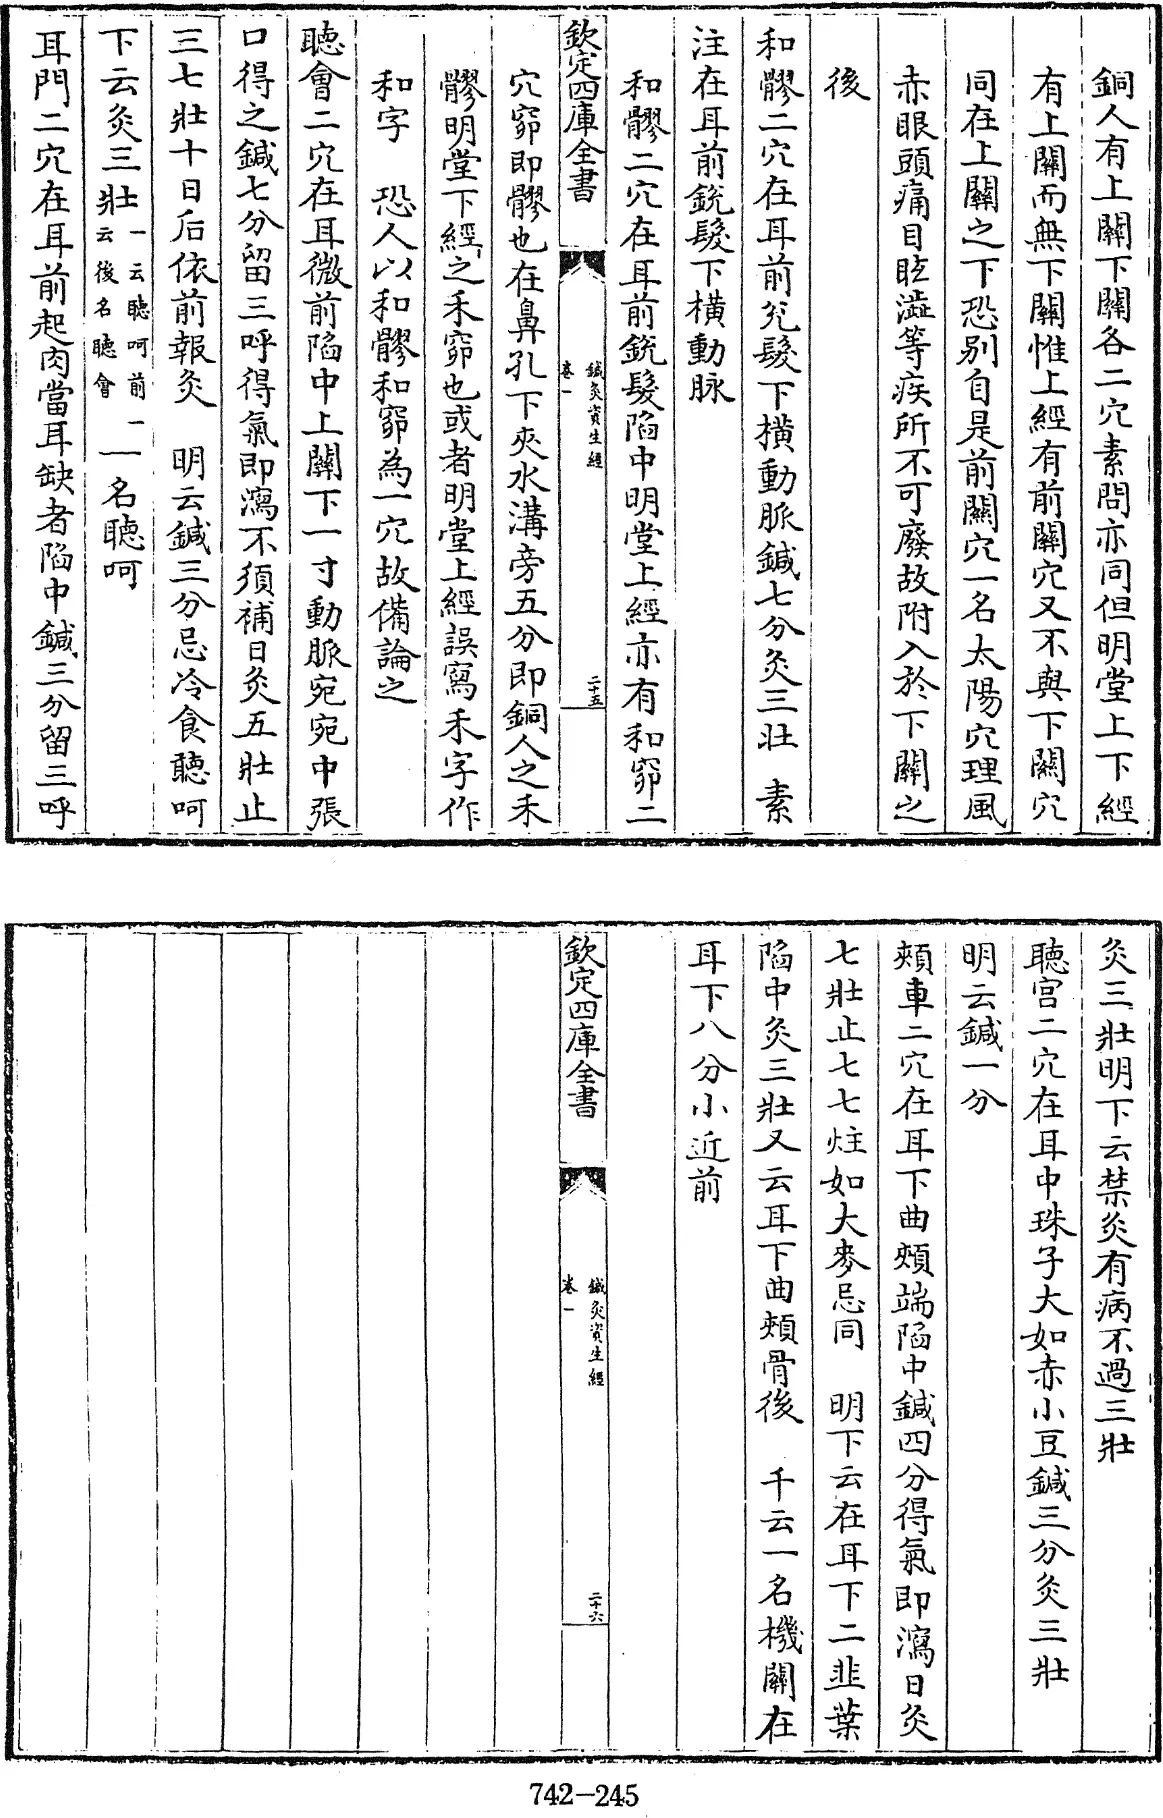 銅人有上關下關各二穴素問亦同但明堂上下經
有上關而無下關惟上經有前關穴又不與下關穴
同在上關之下恐别自是前關穴一名太陽穴理風
赤眼頭痛目眩澁等疾所不可廢故附入於下關之
後
和髎二穴在耳前兊髮下横動脈鍼七分灸三壯 素
注在耳前銳髮下横動脉
和髎二穴在耳前銳髮陷中明堂上經亦有和窌二
欽定四庫全書
鍼灸資生經
卷一
二十五
穴窌即髎也在鼻孔下夾水溝旁五分即銅人之禾
髎明堂下經之禾窌也或者明堂上經誤寫禾字作
和字 恐人以和髎和窌為一穴故備論之
聽會二穴在耳微前陷中上關下一寸動脈宛宛中張
口得之鍼七分留三呼得氣即瀉不須補日灸五壯止
三七壯十日后依前報灸 明云鍼三分忌冷食聽呵
下云灸三壯一云聽呵前二云後名聽會 一名聽呵
耳門二穴在耳前起肉當耳缺者陷中鍼三分留三呼
灸三壯明下云禁灸有病不過三壯
聽宫二穴在耳中珠子大如赤小豆鍼三分灸三壯
明云鍼一分
頰車二穴在耳下曲頰端陷中鍼四分得氣即瀉日灸
七壯止七七炷如大麥忌同 明下云在耳下二韭葉
陷中灸三壯又云耳下曲頰骨後 千云一名機關在
耳下八分小近前
欽定四庫全書
鍼灸資生經
卷一
二十六
742-245